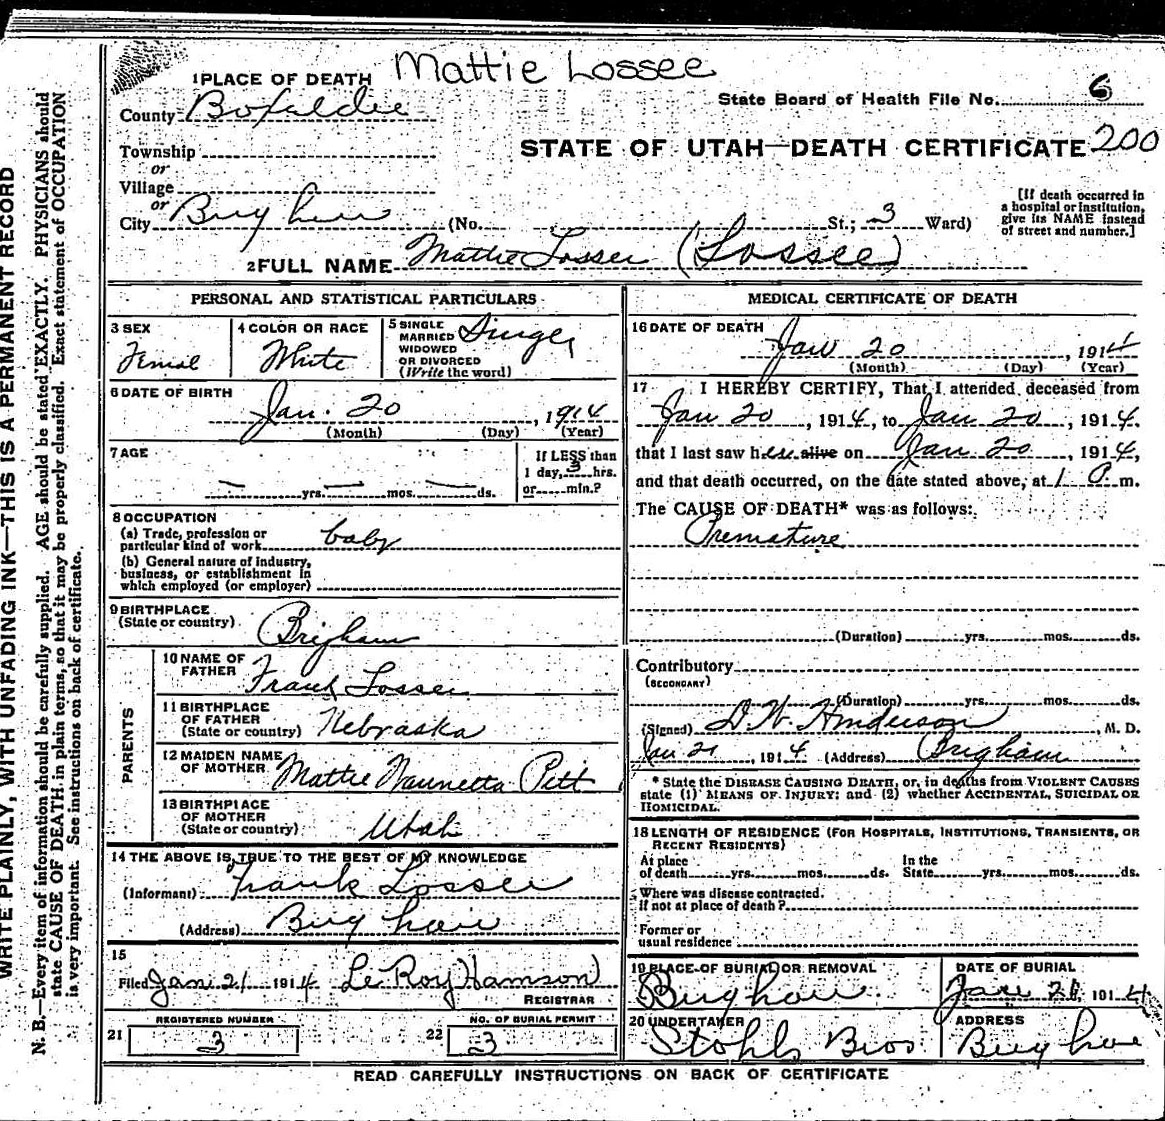 Mattie Lossee
1 PLACE OF DEATH
County
State Board of Health File No. 6
Township
STATE OF UTAH—DEATH CERTIFICATE 200
or
Village
or
City (No. St.; 3 Ward)
[If death occurred in a hospital or institution, give its NAME instead of street and number.]
2 FULL NAME Mattie Lossee (Lossee)
PERSONAL AND STATISTICAL PARTICULARS
3 SEX
4 COLOR OR RACE White
5 SINGLE MARRIED WIDOWED OR DIVORCED (Write the word)
6 DATE OF BIRTH
Jan. 20, 1914
(Month) (Day) (Year)
7 AGE
If LESS than 1 day, 3 hrs. or min.?
— yrs. — mos. — ds.
8 OCCUPATION
(a) Trade, profession or particular kind of work baby
(b) General nature of industry, business, or establishment in which employed (or employer)
9 BIRTHPLACE (State or country) Brigham
PARENTS
10 NAME OF FATHER Frank Lossee
11 BIRTHPLACE OF FATHER (State or country) Nebraska
12 MAIDEN NAME OF MOTHER Mattie Pitt
13 BIRTHPLACE OF MOTHER (State or country) Utah
14 THE ABOVE IS TRUE TO THE BEST OF MY KNOWLEDGE
(Informant) Frank Lossee
(Address)
15
Filed Jan 21 1914
REGISTRAR
21 REGISTERED NUMBER 3
22 NO. OF BURIAL PERMIT 3
MEDICAL CERTIFICATE OF DEATH
16 DATE OF DEATH
Jan 20, 1914
(Month) (Day) (Year)
17 I HEREBY CERTIFY, That I attended deceased from
Jan 20, 1914, to Jan 20, 1914.
that I last saw her alive on Jan 20, 1914,
and that death occurred, on the date stated above, at 1 P. m.
The CAUSE OF DEATH* was as follows:
Premature
(Duration) yrs. mos. ds.
Contributory
(SECONDARY)
(Duration) yrs. mos. ds.
(Signed) , M. D.
Jan 21, 1914 (Address) Brigham
* State the DISEASE CAUSING DEATH, or, in deaths from VIOLENT CAUSES
state (1) MEANS OF INJURY; and (2) whether ACCIDENTAL, SUICIDAL OR
HOMICIDAL.
18 LENGTH OF RESIDENCE (FOR HOSPITALS, INSTITUTIONS, TRANSIENTS, OR
RECENT RESIDENTS)
At place of death yrs. mos. ds. In the State yrs. mos. ds.
Where was disease contracted.
if not at place of death?
Former or
usual residence
19 PLACE OF BURIAL OR REMOVAL
DATE OF BURIAL
Jan 21, 1914
20 UNDERTAKER Stohls Bros
ADDRESS
READ CAREFULLY INSTRUCTIONS ON BACK OF CERTIFICATE
WRITE PLAINLY, WITH UNFADING INK—THIS IS A PERMANENT RECORD
N. B.—Every item of information should be carefully supplied. AGE should be stated EXACTLY. PHYSICIANS should
state CAUSE OF DEATH in plain terms, so that it may be properly classified. Exact statement of OCCUPATION
is very important. See instructions on back of certificate.